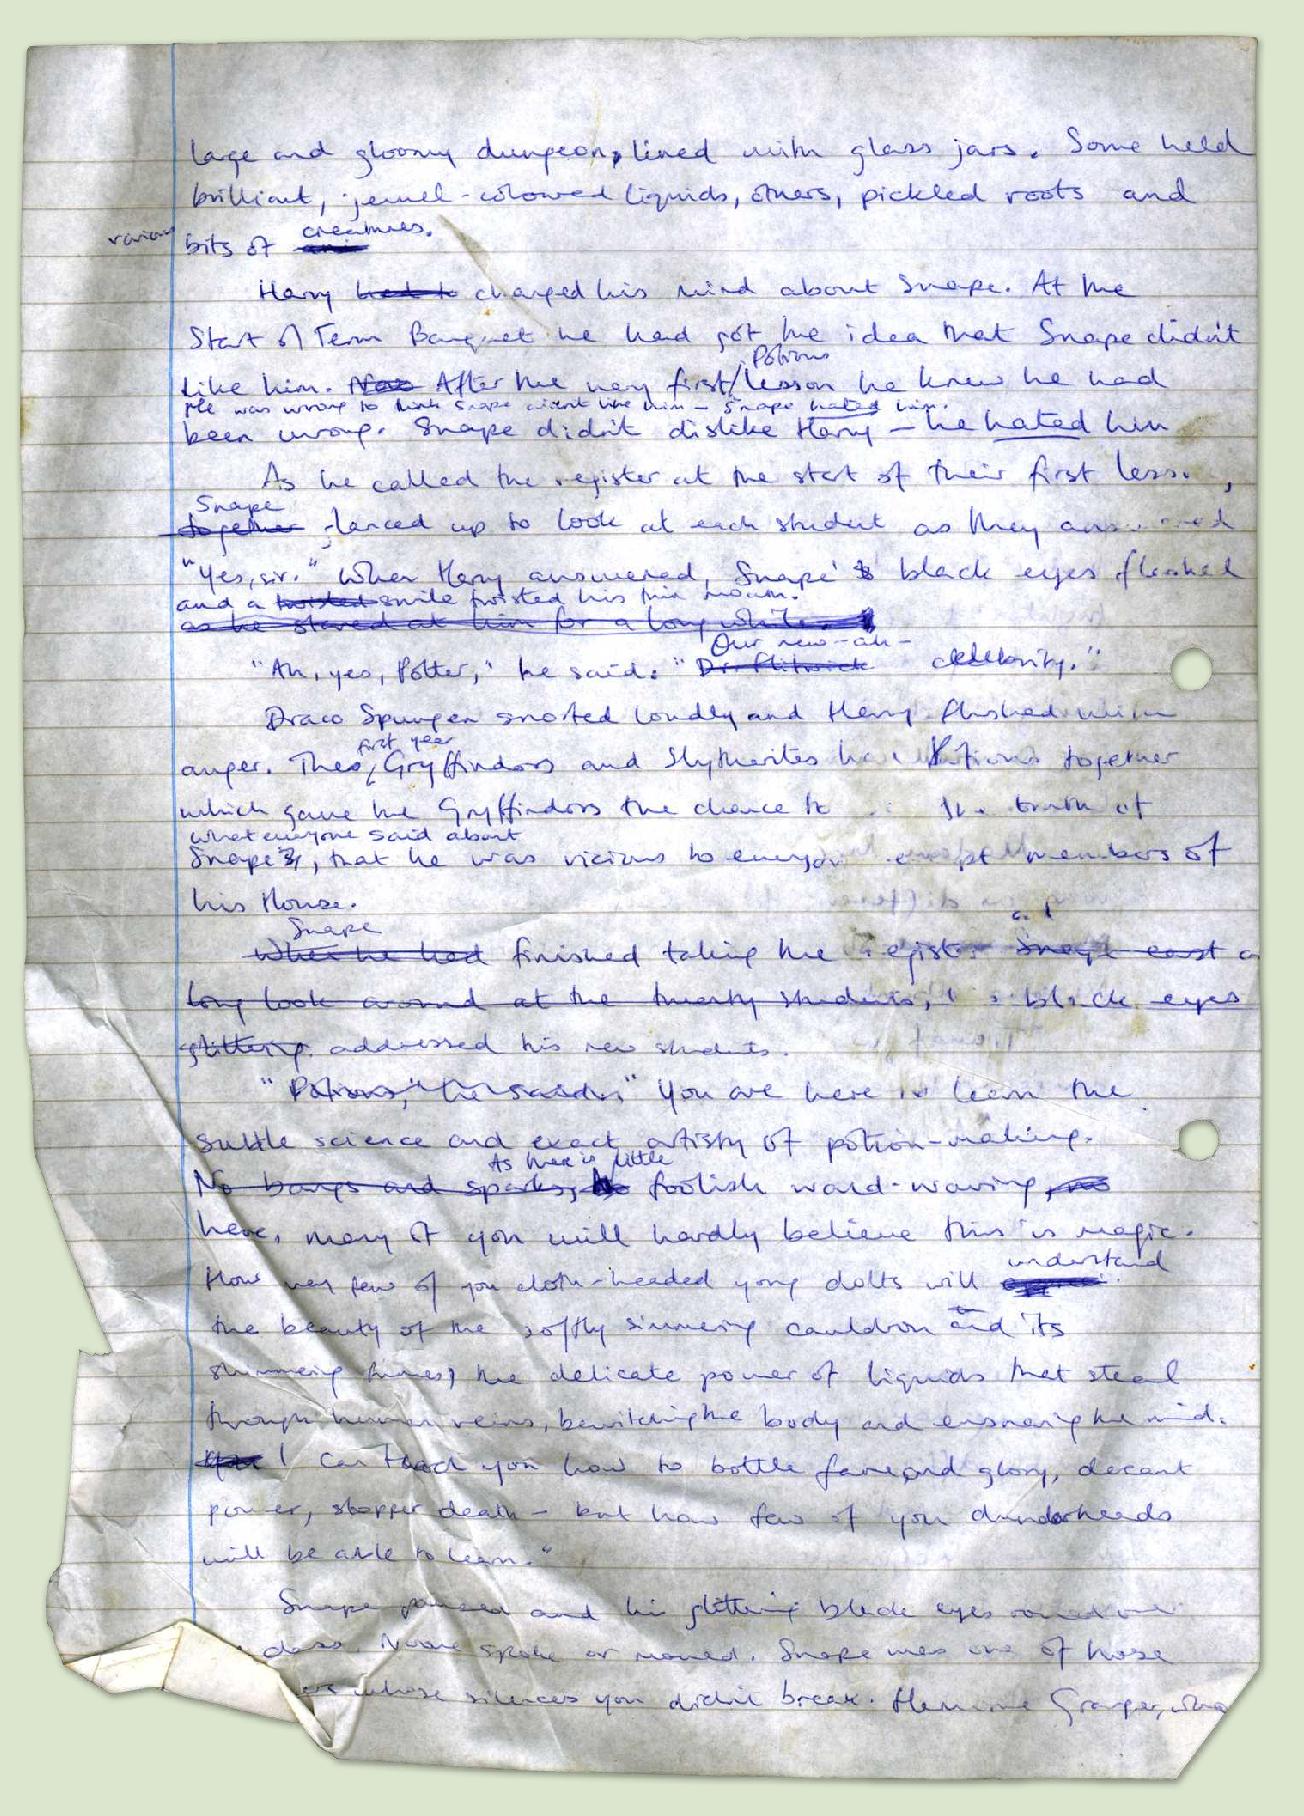 large and gloomy dungeon, lined with glass jars. Some held
brilliant, jewel-coloured liquids, others, pickled roots and
creatures.
various bits of
Harry had to changed his mind about Snape. At the
Start of Term Banquet he had got the idea that Snape didn't
Potions
like him. Now After the very first lesson he knew he had
He was wrong to think Snape didn't like him - Snape hated him.
been wrong. Snape didn't dislike Harry - he hated him
As he called the register at the start of their first lesson,
Snape
together glanced up to look at each student as they answered
"Yes, sir." When Harry answered, Snape's black eyes flashed
and a twisted smile twisted his thin mouth.
as he stared at him for a long while.
Our new - ah -
"Ah, yes, Potter," he said. "Dr. Flitwick celebrity."
Draco Spungen snorted loudly and Harry flushed with
first year
anger. The Gryffindors and Slytherites had Potions together
which gave the Gryffindors the chance to truth of
what everyone said about
Snape, that he was vicious to everyone except members of
his House.
Snape and
When he had finished taking the register Snape cast a
long look around at the twenty students, his black eyes
glittering. addressed his new students.
"Potions," he said. "You are here to learn the
subtle science and exact artistry of potion-making.
As there is little
No bangs and sparks, no foolish wand-waving, no
here, many of you will hardly believe this is magic.
understand
How very few of you cloth-headed young dolts will
the beauty of the softly simmering cauldron and its
shimmering fumes, the delicate power of liquids that steal
through human veins, bewitching the body and ensnaring the mind.
I can teach you how to bottle fame and glory, decant
power, stopper death - but how few of you dunderheads
will be able to learn."
Snape paused and his glittering black eyes over
class. No one spoke or moved. Snape was one of those
whose silences you didn't break. Hermione Granger, who